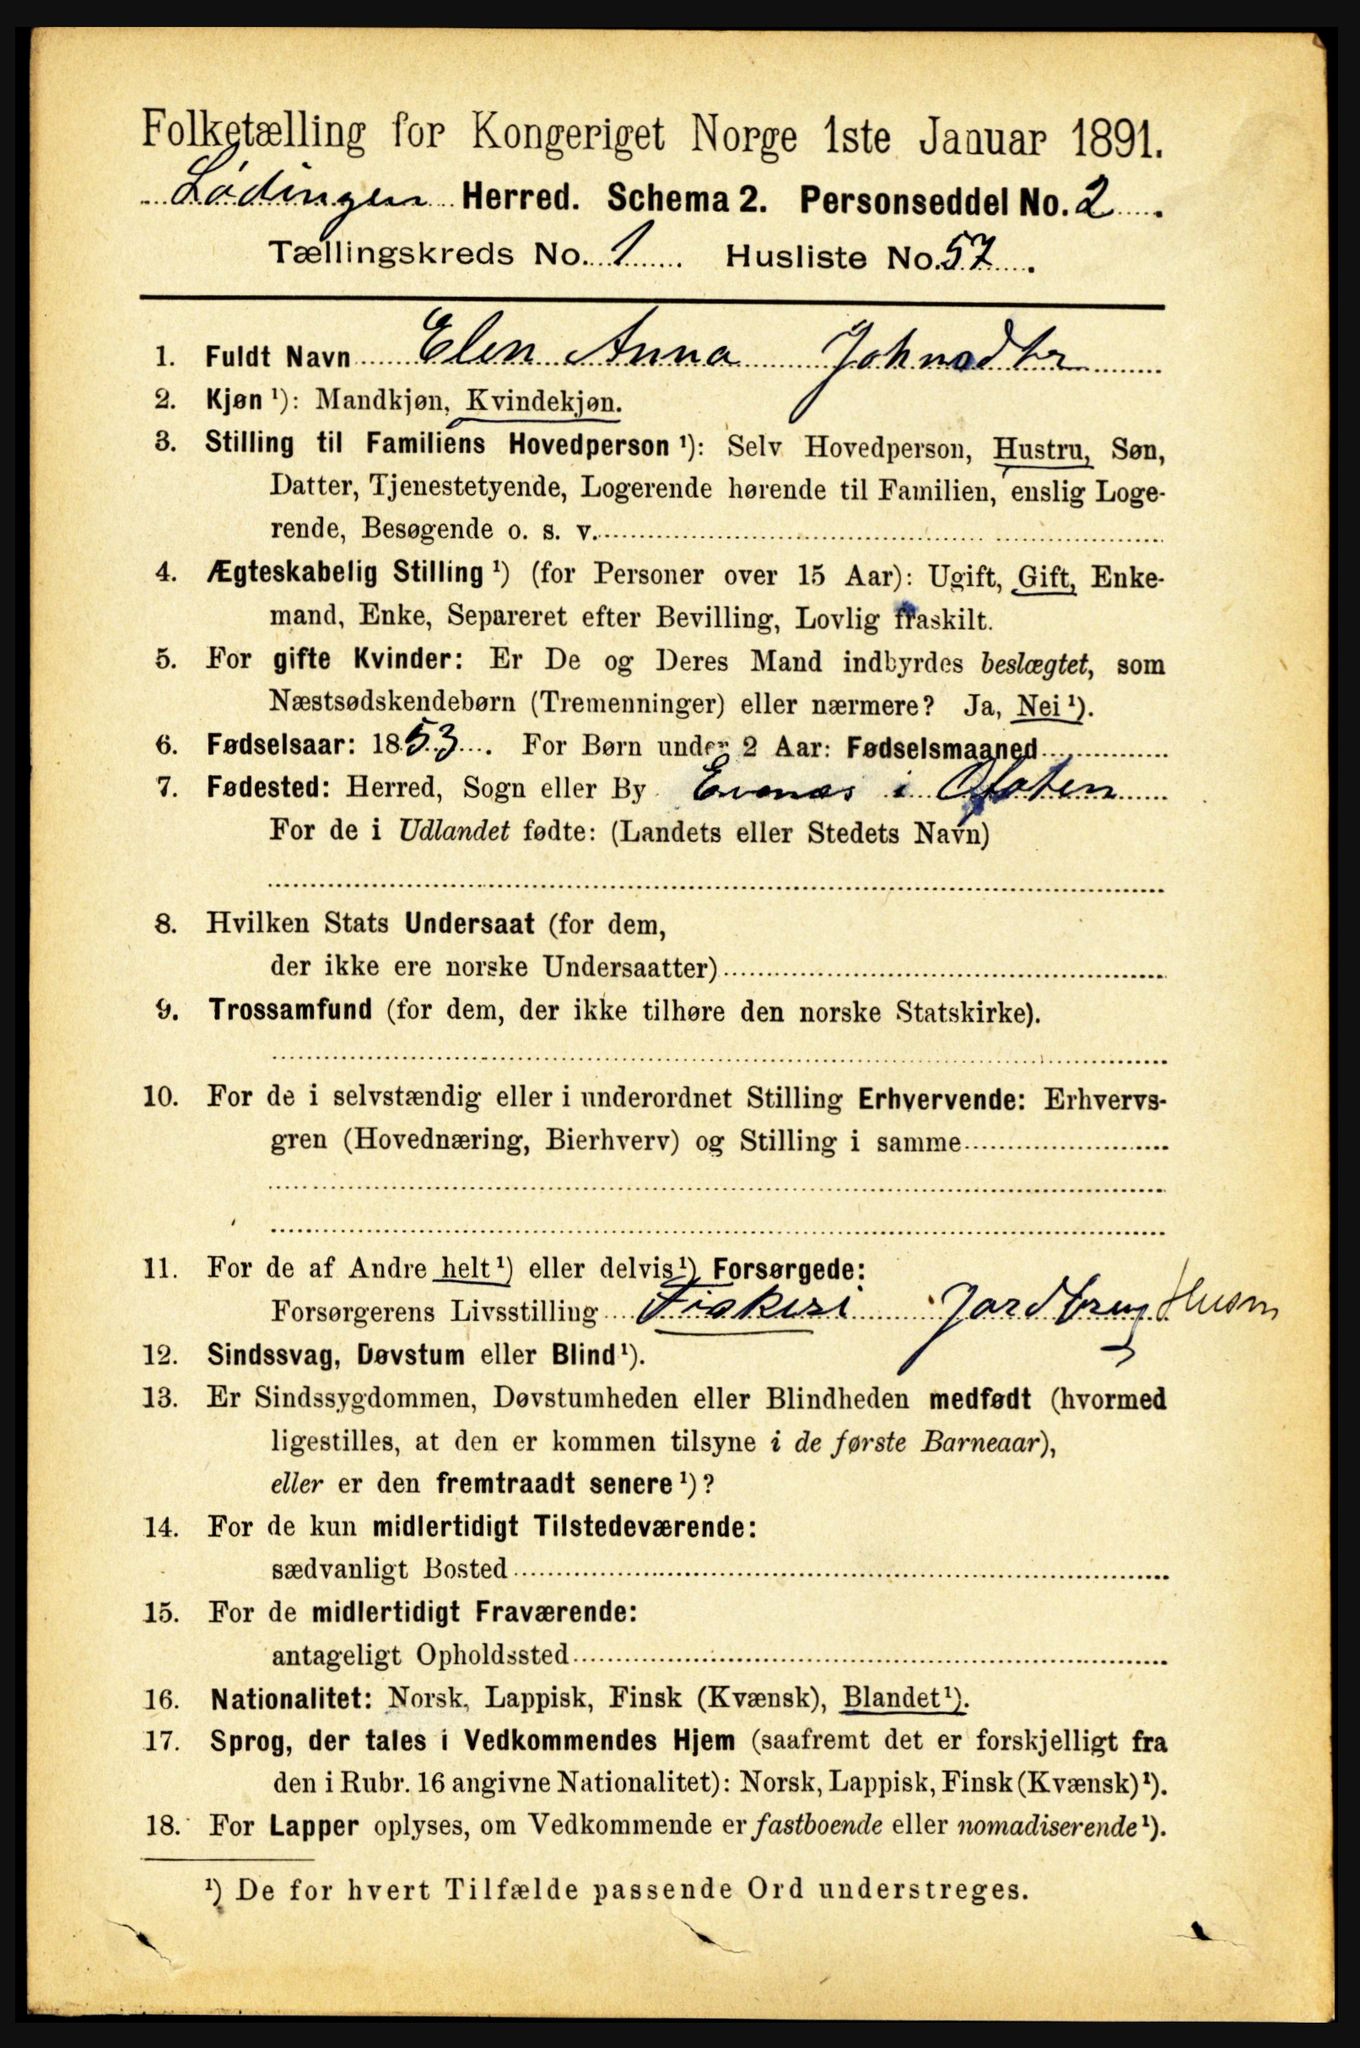 Folketælling for Kongeriget Norge 1ste Januar 1891.
Lødingen Herred. Schema 2. Personseddel No. 2.
Tællingskreds No. 1 Husliste No. 57.
1. Fuldt Navn Elen Anna Johnsdtr
2. Kjøn ¹): Mandkjøn, Kvindekjøn.
3. Stilling til Familiens Hovedperson ¹): Selv Hovedperson, Hustru, Søn,
Datter, Tjenestetyende, Logerende hørende til Familien, enslig Loge-
rende, Besøgende o. s. v.
4. Ægteskabelig Stilling ¹) (for Personer over 15 Aar): Ugift, Gift, Enke-
mand, Enke, Separeret efter Bevilling, Lovlig fraskilt.
5. For gifte Kvinder: Er De og Deres Mand indbyrdes beslægtet, som
Næstsødskendebørn (Tremenninger) eller nærmere? Ja, Nei ¹).
6. Fødselsaar: 1853. For Børn under 2 Aar: Fødselsmaaned
7. Fødested: Herred, Sogn eller By Evenæs i Ofoten
For de i Udlandet fødte: (Landets eller Stedets Navn)
8. Hvilken Stats Undersaat (for dem,
der ikke ere norske Undersaatter)
9. Trossamfund (for dem, der ikke tilhøre den norske Statskirke).
10. For de i selvstændig eller i underordnet Stilling Erhvervende: Erhvervs-
gren (Hovednæring, Bierhverv) og Stilling i samme
11. For de af Andre helt ¹) eller delvis ¹) Forsørgede:
Forsørgerens Livsstilling Fiskeri Jordbrug Husm
12. Sindssvag, Døvstum eller Blind ¹).
13. Er Sindssygdommen, Døvstumheden eller Blindheden medfødt (hvormed
ligestilles, at den er kommen tilsyne i de første Barneaar),
eller er den fremtraadt senere ¹)?
14. For de kun midlertidigt Tilstedeværende:
sædvanligt Bosted
15. For de midlertidigt Fraværende:
antageligt Opholdssted
16. Nationalitet: Norsk, Lappisk, Finsk (Kvænsk), Blandet ¹).
17. Sprog, der tales i Vedkommendes Hjem (saafremt det er forskjelligt fra
den i Rubr. 16 angivne Nationalitet): Norsk, Lappisk, Finsk (Kvænsk) ¹).
18. For Lapper oplyses, om Vedkommende er fastboende eller nomadiserende ¹).
¹) De for hvert Tilfælde passende Ord understreges.